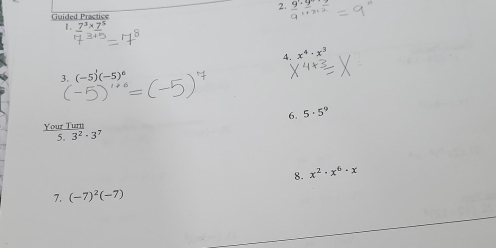 Guided Practice
1. 7³ × 7⁵
7³⁺⁵ = 7⁸
2. 9
= 9
3. (−5)¹(−5)⁶
(−5)¹⁺⁶ = (−5)⁷
4. x⁴ · x³
x⁴⁺³ = x
Your Turn
5. 3² · 3⁷
6. 5 · 5⁹
7. (−7)²(−7)
8. x² · x⁶ · x